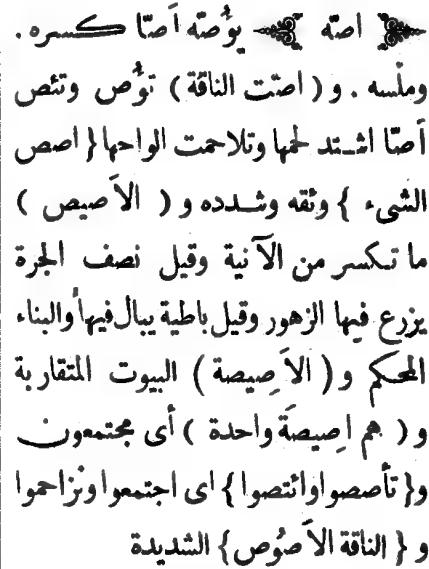 اصّه يؤُصّه اَصّا كسره .
وملّسه . و ( اصّت الناقة ) تؤُص وتئص
اَصّا اشتد لحمها وتلاحمت الواحها { اصص
الشىء } وثقه وشدده و ( الاَصيص )
ما تكسر من الآنية وقيل نصف الجرة
يزرع فيها الزهور وقيل باطية يبال فيها والبناء
المحكم و ( الاَصِيصة ) البيوت المتقاربة
و ( هم اصِيصَة واحدة ) أى مجتمعون
و{ تأصصوا وائتصوا } اى اجتمعوا وتزاحموا
و { الناقة الاَصُوص } الشديدة